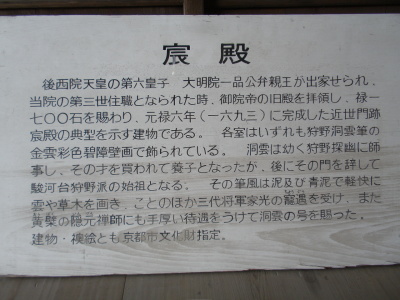 宸殿
後西院天皇の第六皇子 大明院一品公弁親王が出家せられ、
当院の第三世住職となられた時、御院帝の旧殿を拝領し、禄一
七〇〇石を賜わり、元禄六年（一六九三）に完成した近世門跡
宸殿の典型を示す建物である。 各室はいずれも狩野洞雲筆の
金雲彩色碧障壁画で飾られている。 洞雲は幼く狩野探幽に師
事し、その才を買われて養子となったが、後にその門を辞して
駿河台狩野派の始祖となる。 その筆風は泥及び青泥で軽快に
雲や草木を画き、ことのほか三代将軍家光の寵遇を受け、また
黄檗の隠元禅師にも手厚い待遇をうけて洞雲の号を賜った。
建物・襖絵とも京都市文化財指定。